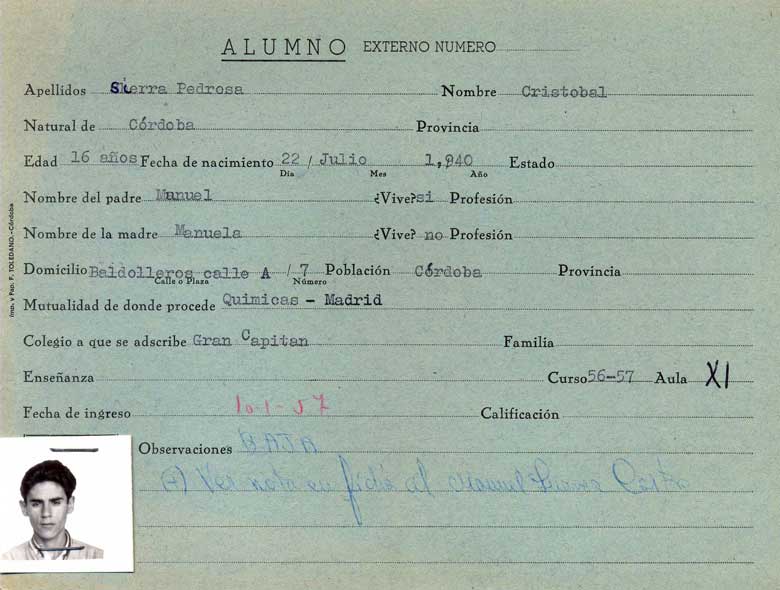 ALUMNO EXTERNO NUMERO
Apellidos Sierra Pedrosa Nombre Cristobal
Natural de Córdoba Provincia
Edad 16 años Fecha de nacimiento 22 / Julio 1,940 Estado
Dia Mes Año
Nombre del padre Manuel ¿Vive? si Profesión
Nombre de la madre Manuela ¿Vive? no Profesión
Domicilio Baidolleros calle A / 7 Población Córdoba Provincia
Calle o Plaza Número
Mutualidad de donde procede Quimicas - Madrid
Colegio a que se adscribe Gran Capitan Familia
Enseñanza Curso 56-57 Aula XI
Fecha de ingreso 10-1-57 Calificación
Observaciones BAJA
Ver nota en ficha al
Imp. y Pap. F. TOLEDANO.-Córdoba